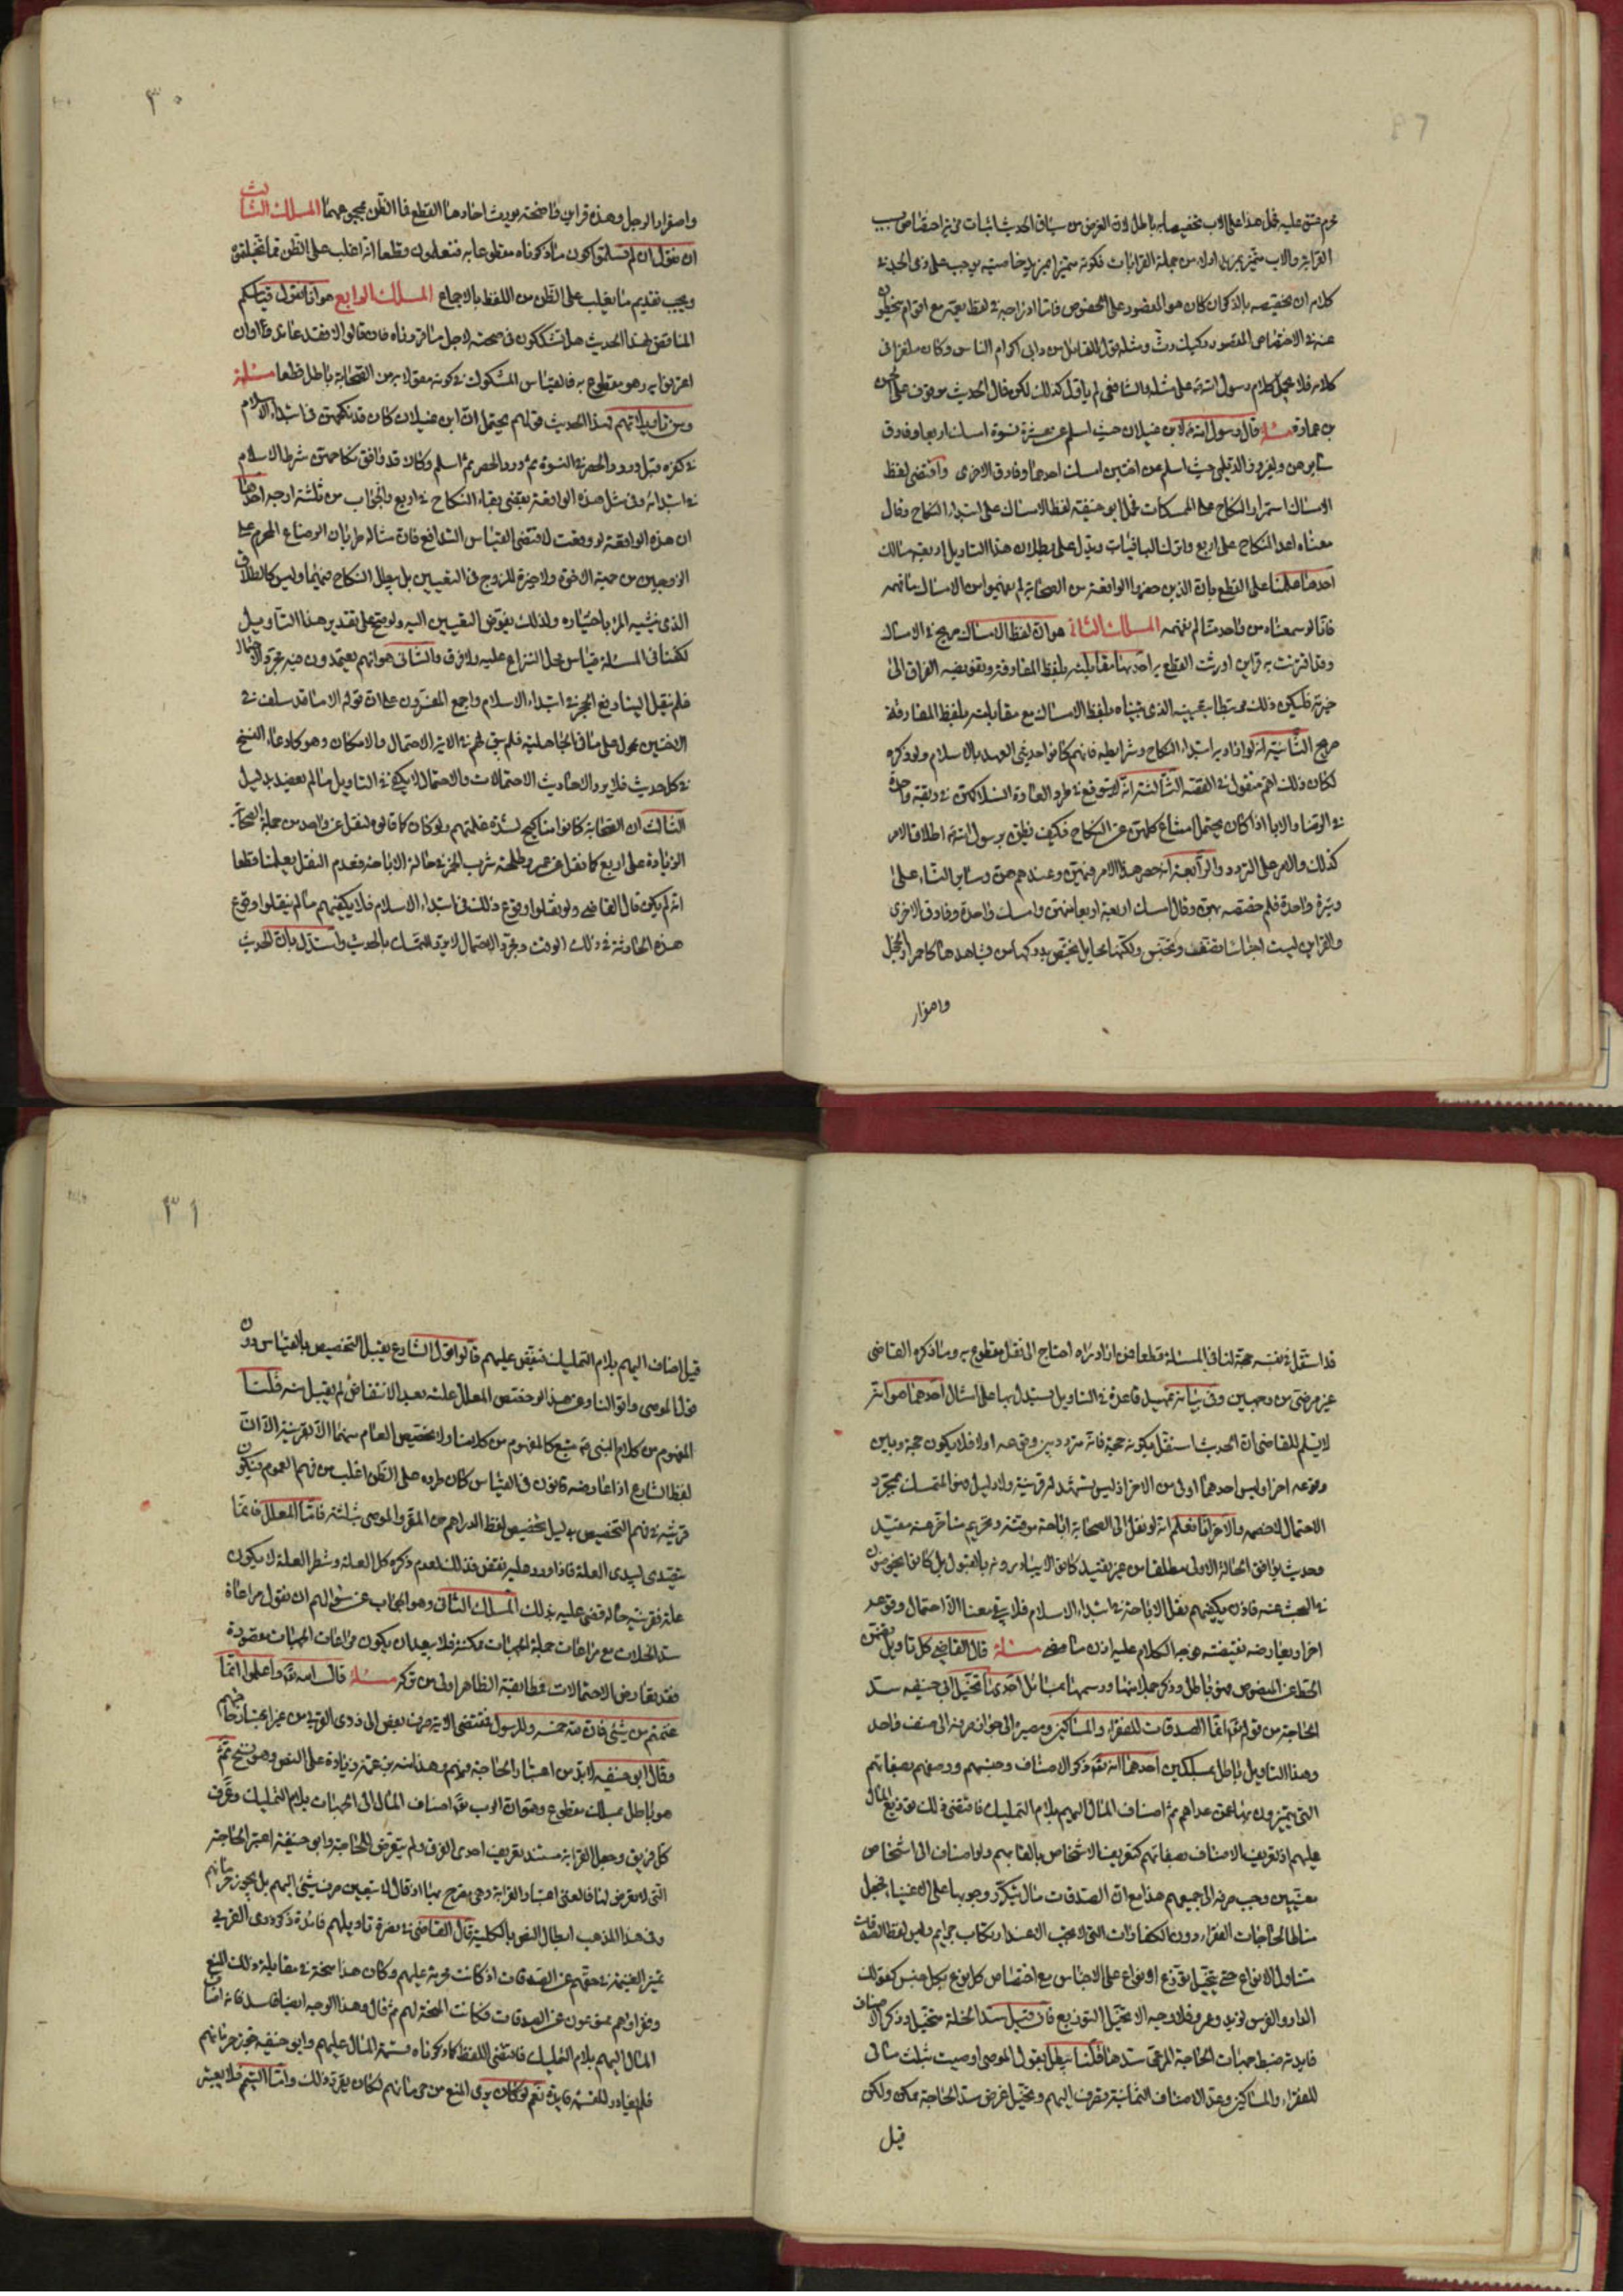 محرم عتق عليه فحمل هذا على الاب تخصيصا به باطل لان الغرض من سياق الحديث اثبات مزية اختصاص بسبب
القرابة والاب متميز بمزيد ادلاء من جملة القرابات فكونه متميزا بمزيد خاصية يوجب على ذى الجد فى
كلامه ان تخصيصه بالذكر ان كان هو المقصود على الخصوص فاما ادراجه فى لفظ يعمه مع اقوام
عنه فى الاختصاص المقصود ركيك رث ومثله قول القائل من دانى اكرام الناس وكان ملغزا فى
كلامه فلا يحمل كلام رسول الله على مثله والشافعى لم يأول كذلك لكن قال الحديث موقوف على الحسن
بن عمارة مسئلة قال رسول الله لابن غيلان حيث اسلم عن عشرة نسوة امسك اربعا وفارق
سايرهن ولفيروز الديلمى حيث اسلم عن اختين امسك احدهما وفارق الاخرى واقتضى لفظ
الامساك استمرار النكاح على الممسكات فحمل ابو حنيفة لفظ الامساك على ابتداء النكاح وقال
معناه اعد النكاح على اربع واترك الباقيات ويدل على بطلان هذا التاويل اربعة مسالك
احدها علمنا على القطع بان الذين حضروا الواقعة من الصحابة لم يفهموا من الامساك ما فهمه
فانا لو سمعناه من واحد منا لم نفهمه المسلك الثانى هو ان لفظ الامساك صريح فى الامساك
وقد اقترنت به قراين اورثت القطع به احدها مقابلته بلفظ المفارقة وتفويضه الفراق الى
خيرته فليكن ذلك مرتبطا بخيرته الذى بيناه بلفظ الامساك مع مقابلته بلفظ المفارقة
صريح الثانية انه لو اراد به ابتداء النكاح وشرايطه فانهم كانوا حديثى العهد بالاسلام ولو ذكره
لكان ذلك اهم منقول فى القصة الثالثة انه لا يتوقع فى طرد العادة انسلاكهن فى ربقة واحدة
فى الرضا والاباء اذا كان يحتمل امتناع كلهن عن النكاح فكيف يطلق برسول الله اطلاق الامر
كذلك والامر على التردد والرابعة انه حصر هذا الامر فيهن وعندهم هن وساير النساء على
وتيرة واحدة فلم خصصه بهن وقال امسك اربعة اربعا منهن وامسك واحدة وفارق الاخرى
والقراين ليست اجناسا تضعف وتحتبس ولكنها مخايل يختص بدركها من شاهدها كاحمرار الخجل
واصفرار
٣٠
واصفرار الوجل وهذه قراين واضحة يورث احادها القطع فاما الظن فيجوعها المسلك الثالث
ان نقول ان لم تسلموا كون ما ذكرناه مقطوعا به فتعلمون قطعا انه اغلب على الظن مما تخيلتموه
ويجب تقديم ما يغلب على الظن من اللفظ بالاجماع المسلك الرابع هو انا نقول قياسكم
المناقض لهذا الحديث هل تشككون فى صحته لاجل ما قررناه فان قالوا لا فقد عاندوا وان
اعترفوا به وهو مقطوع به فالقياس المشكوك فى كونه معقولا به من الصحابة باطل قطعا مسئلة
ومن تاويلاتهم لهذا الحديث قولهم يحتمل ان ابن غيلان كان قد نكحهن فى ابتداء الاسلام
فى كفره قبل ورود الحصر فى النسوة ثم ورد الحصر ثم اسلم وكان قد وافق نكاحهن شرط الاسلام
فى ابتدائه وفى مثل هذه الواقعة يقتضى بقاء النكاح فى اربع والجواب من ثلثة اوجه احدها
ان هذه الواقعة لو وقعت لاقتضى القياس التدافع فان مثاله طريان الرضاع المحرم على
الزوجين من حيث الاخوة ولا خيرة للزوج فى التعيين بل يبطل النكاح فيهما وليس كالطلاق
الذى ينشيه المرء باختياره ولذلك يفوض التعيين اليه ولو صح على تقدير هذا التاويل
لكفانا فى المسئلة قياس محل النزاع عليه ولا فرق والثانى هو انهم يعتمدون فيه مجرد الاحتمال
فلم ينقل الينا رفع الحجر فى ابتداء الاسلام واجمع المفسرون على ان قوله الا ما قد سلف فى
الاختين محمول على ما فى الجاهلية فلم يبق لهم فى الاية الا احتمال والامكان وهو كادعاء النسخ
فى كل حديث فلا يرد الاحاديث الاحتمالات والاحتمال لا يكفى فى التاويل ما لم يعضد بدليل
الثالث ان الصحابة كانوا مناكيح لشدة غلمتهم ولو كان كما قالوه لنقل عن واحد من جملة الصحابة
الزيادة على اربع كما نقل عن عمر وطلحة شرب الخمر فى حالة الاباحة فعدم النقل يعلمنا قطعا
انه لم يكن قال القاضى ولو نقلوا وقوع ذلك فى ابتداء الاسلام فلا يكفيهم ما لم ينقلوا وقوع
هذه الحادثة فى ذلك الوقت ومجرد الاحتمال لا يرد التمسك بالحديث واستدل بان الحديث
قد استقل فى نفسه حجة لنا فى المسئلة قطعا فمن اراد درأه احتاج الى نقل مقطوع به وما ذكره القاضى
غير مرضى من وجهين وفى بيانه تمهيد قاعدة فى التاويل يستدل بها على امثاله احدهما هو انه
لا يسلم للقاضى ان الحديث استقل بكونه حجة فانه متردد بين وقوعه اولا فلا يكون حجة وبين
وقوعه اخرا وليس احدهما اولى من الاخر اذ ليس يشهد له قرينة ولا دليل فهو المتمسك بمجرد
الاحتمال لا خصمه والاخر انا نعلم انه لو نقل الى الصحابة اباحة موقتة وتحريم متاخر عنه مقيد
وحديث يوافق الحالة الاولى مطلقا من غير تقييد كانوا لا يبادرونه بالقبول بل كانوا يخوضون
فى البحث عنه فاذن يكفيهم نقل الاباحة فى ابتداء الاسلام فلا يبقى معنا الا احتمال وقوعه
اخرا ويعارضه نقيضته هو جه الكلام عليه اذن ما مضى مسئلة قال القاضى كل تاويل يتضمن
الحط عن المنصوص فهو باطل وذكر جملا منها ورسمها بمسائل احدها تخيل ابى حنيفة سد
الحاجة من قوله انما الصدقات للفقراء والمساكين ومصيره الى جواز صرفه الى صنف واحد
وهذا التاويل باطل بمسلكين احدهما انه ذكر الاصناف وجنسهم ووصفهم بصفاتهم
التى يتميزون بها عمن عداهم ثم اضاف المال اليهم بلام التمليك فاقتضى ذلك توزيع المال
عليهم اذ تعريف الاصناف بصفاتهم كتعريف الاشخاص بالقابهم ولو اضاف الى اشخاص
معينين وجب صرفه الى جميعهم هذا مع ان الصدقات مال يتكرر وجوبها على الاغنياء فجعل
مناطا لحاجات الفقراء دون الكفارات التى لا تجب الا عند ارتكاب جرايم وليس لفظ الصدقات
متناولا لانواع حتى يتخيل توزع انواع على الاجناس مع اختصاص كل نوع بكل جنس كقولك
الدار والفرس لزيد وعمرو فلا وجه الا تخيل التوزيع فان قيل سد الخلة متخيل وذكر الاصناف
فايدته ضبط جهات الحاجة المرعى سدها قلنا يبطل بقول الموصى اوصيت بثلث مالى
للفقراء والمساكين وعد الاصناف الثمانية يصرف اليهم ويتخيل غرض سد الحاجة ممكن ولكن
قيل
٣١
قيل اضاف اليهم بلام التمليك فنقض عليهم قالوا قول الشارع يقبل التخصيص بالقياس دون
قول الموصى واقوالنا وعن هذا لو خصص المعلل علته بعد الانتقاض لم يقبل منه قلنا
المفهوم من كلام النبى متبع كالمفهوم من كلامنا ولا تخصيص العام منهما الا بقرينة الا ان
لفظ الشارع اذا عارضه قانون فى القياس كان طرده على الظن اغلب من فهم العموم فيكون
قرينة فى فهم التخصيص بدليل تخصيص لفظ الدراهم من المقر والموصى بثلثه فاما المعلل فانما
يتصدى لبدى العلة فاذا ورد عليه نقض فذلك لعدم ذكره كل العلة وشطر العلة لا يكون
علة فقرينة حاله قضى عليه بذلك المسلك الثانى وهو الجواب عن سؤالهم ان نقول مراعاة
سد الخلات مع مراعات جملة الجهات ممكنة فلا يبعد ان يكون مراعات الجهات مقصودة
فقد تعارض الاحتمالات فمطابقة الظاهر اولى من تركه مسئلة قال الله واعلموا انما
غنمتم من شئ فان لله خمسه وللرسول فمقتضى الاية صرف بعض الى ذوى القربى من غير اعتبار حاجتهم
وقال ابو حنيفة لا بد من اعتبار الحاجة فيهم وهذا منه زيادة على النص وهو نسخ ثم
هو باطل بمسلك مقطوع وهو ان الرب اضاف المال الى الجهات بلام التمليك وعرف
كل فريق وجعل القرابة مستند تعريف احدى الفرق ولم يتعرض للحاجة وابو حنيفة اعتبر الحاجة
التى لا تعرض لها فالغى اعتبار القرابة وهى مصرح بها اذ قال لا يتعين صرف شئ اليهم بل يجوز حرمانهم
وفى هذا المذهب ابطال النص بالكلية قال القاضى فى نصرة تاويلهم فائدة ذكر ذوى القربى
تميز الغنيمة فى حقهم عن الصدقات اذ كانت محرمة عليهم وكان هذا منحة فى مقابلة ذلك المنع
وفقراؤهم ممنوعون عن الصدقات فكانت المنحة لهم ثم قال وهذا الوجه ايضا فاسد فانه اضاف
المال اليهم بلام التمليك فاقتضى اللفظ كما ذكرناه قسمة المال عليهم وابو حنيفة يجوز حرمانهم
فلم يغادر للقسمة فايدة نعم لو كان يرى المنع من حرمانهم لكان يقرب ذلك واما اليتيم فلا يعتبر